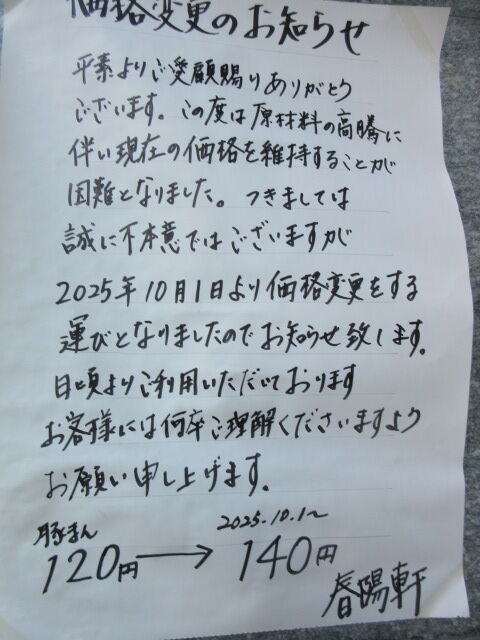 価格変更のお知らせ
平素よりご愛顧賜りありがとう
ございます。この度は原材料の高騰に
伴い現在の価格を維持することが
困難となりました。つきましては
誠に不本意ではございますが
2025年10月1日より価格変更をする
運びとなりましたのでお知らせ致します。
日頃よりご利用いただいております
お客様には何卒ご理解くださいますよう
お願い申し上げます。
豚まん 2025.10.1〜
120円→140円
春陽軒